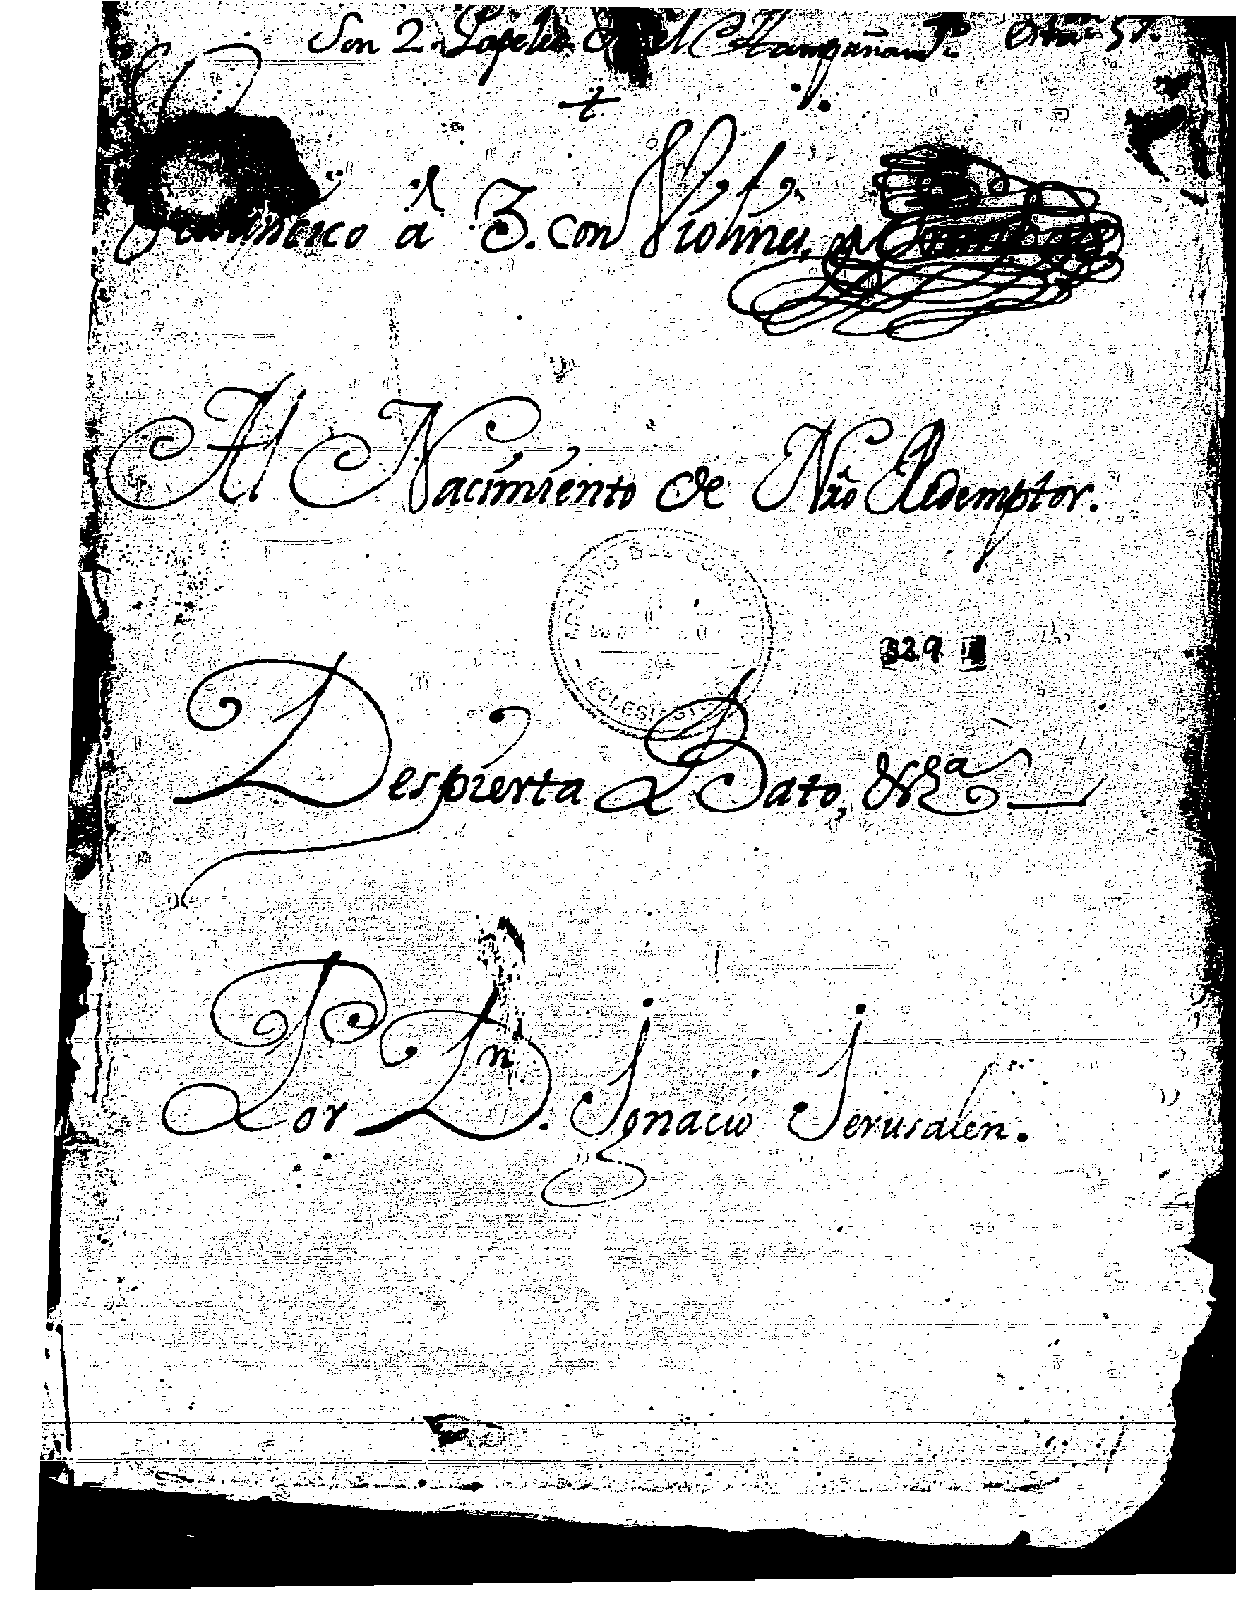 Son 2 Papeles el
+
à 3. con Violines, y
Al Nacimiento de Nrõ Redemptor.
329
Despierta Bato, &ª
Por Dn. Ignacio Jerusalen.